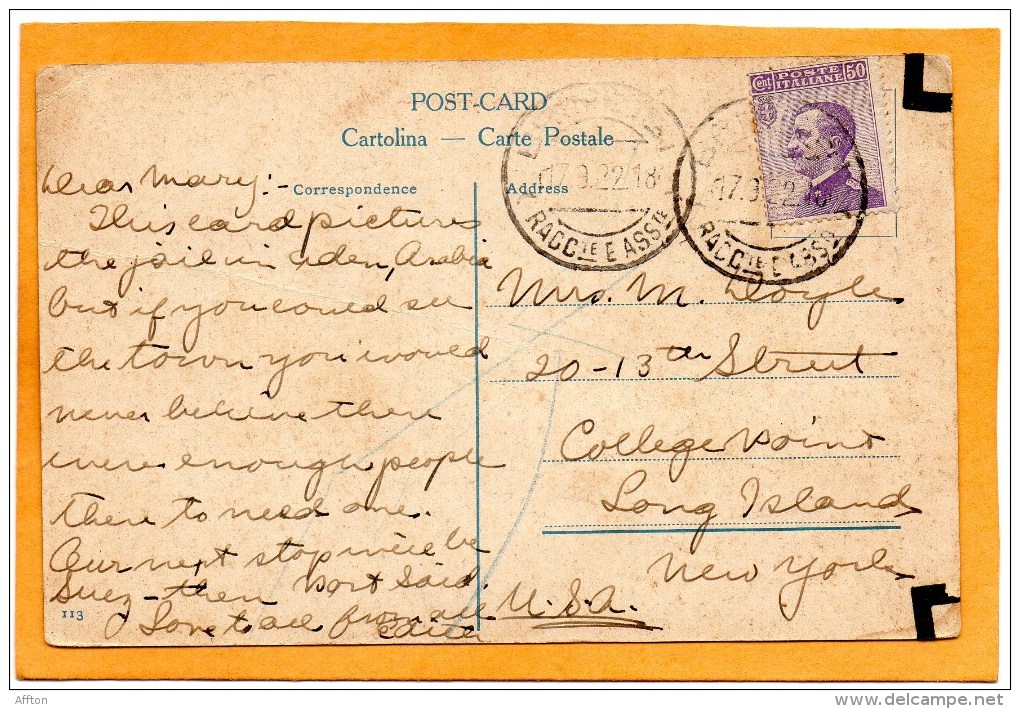 POST-CARD
Cartolina — Carte Postale
Correspondence
Address
Cent 50
POSTE
ITALIANE
17.9.22.18
RACC.TE E ASS.TE
17.9.22.18
RACC.TE E ASS.TE
Dear Mary:-
This card pictures
the jail in Aden, Arabia
but if you could see
the town you would
never believe there
were enough people
there to need one.
Our next stop will be
Suez - then Port Said.
Love to all from all
Mrs. M. Doyle
20-13th Street
College Point
Long Island
New York
U.S.A.
113
Affton
www.delcampe.net